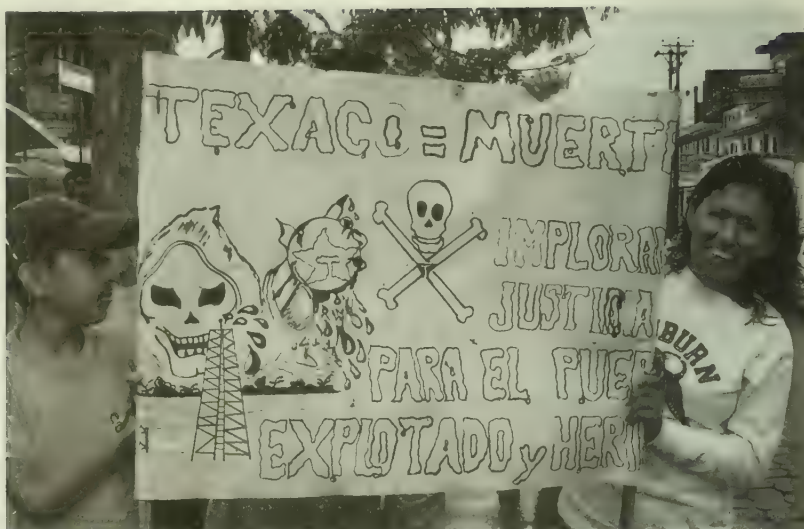 TEXACO = MUERT
IMPLORA
JUSTICIA
PARA EL PUE
EXPLOTADO y HER
T
T
BURN